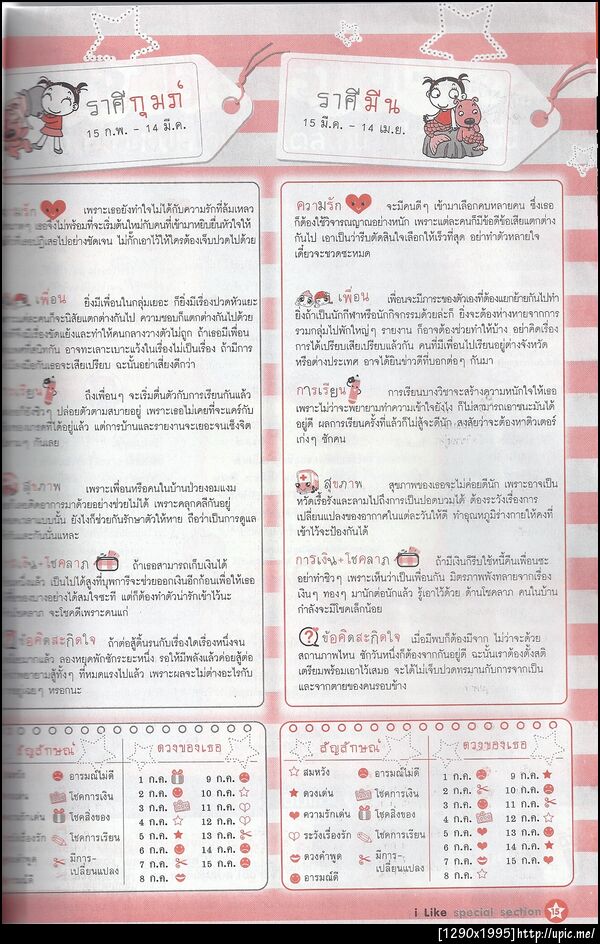 ราศีกุมภ์
15 ก.พ. - 14 มี.ค.
ราศีมีน
15 มี.ค. - 14 เม.ย.
เพราะเธอยังทำใจไม่ได้กับความรักที่ล้มเหลว
เธอจึงไม่พร้อมที่จะเริ่มต้นใหม่กับคนที่เข้ามาหยิบยื่นหัวใจให้
ปฏิเสธไปอย่างชัดเจน ไม่กั๊กเอาไว้ให้ใครต้องเจ็บปวดไปด้วย
เพื่อน ยิ่งมีเพื่อนในกลุ่มเยอะ ก็ยิ่งมีเรื่องปวดหัวแยะ
แต่ละคนก็จะนิสัยแตกต่างกันไป ความชอบก็แตกต่างกันไปด้วย
เรื่องขัดแย้งและทำให้คนกลางวางตัวไม่ถูก ถ้าเธอมีเพื่อน
กัน อาจทะเลาะเบาะแว้งในเรื่องไม่เป็นเรื่อง ถ้ามีการ
กันเธอจะเสียเปรียบ ฉะนั้นอย่าเสี่ยงดีกว่า
เรียน ถึงเพื่อนๆ จะเริ่มตื่นตัวกับการเรียนกันแล้ว
ชิวๆ ปล่อยตัวตามสบายอยู่ เพราะเธอไม่เคยที่จะแคร์กับ
ที่ได้อยู่แล้ว แต่การบ้านและรายงานจะเยอะจนเซ็งจิต
กันเลย
สุขภาพ เพราะเพื่อนหรือคนในบ้านป่วยงอมแงม
เลยติดอาการมาด้วยอย่างช่วยไม่ได้ เพราะคลุกคลีกันอยู่
แบบนั้น ยังไงก็ช่วยกันรักษาตัวให้หาย ถือว่าเป็นการดูแล
กันนั่นแหละ
การเงิน+โชคลาภ ถ้าเธอสามารถเก็บเงินได้
แล้ว เป็นไปได้สูงที่บุพการีจะช่วยออกเงินอีกก้อนเพื่อให้เธอ
ของบางอย่างได้สมใจซะที แต่ก็ต้องทำตัวน่ารักเข้าไว้นะ
โชคลาภ จะโชคดีเพราะคนแก่
ข้อคิดสะกิดใจ ถ้าต่อสู้ดิ้นรนกับเรื่องใดเรื่องหนึ่งจน
มากแล้ว ลองหยุดพักซักระยะหนึ่ง รอให้มีพลังแล้วค่อยสู้ต่อ
พยายามสู้ทั้งๆ ที่หมดแรงไปแล้ว เพราะผลจะไม่ต่างอะไรกับ
เฉยๆ หรอกนะ
ความรัก จะมีคนดีๆ เข้ามาเลือกคบหลายคน ซึ่งเธอ
ก็ต้องใช้วิจารณญาณอย่างหนัก เพราะแต่ละคนก็มีข้อดีข้อเสียแตกต่าง
กันไป เอาเป็นว่ารีบตัดสินใจเลือกให้เร็วที่สุด อย่าทำตัวหลายใจ
เดี๋ยวจะชวดซะหมด
เพื่อน เพื่อนจะมีภาระของตัวเองที่ต้องแยกย้ายกันไปทำ
ยิ่งถ้าเป็นนักกีฬาหรือนักกิจกรรมด้วยล่ะก็ ยิ่งจะต้องห่างหายจากการ
รวมกลุ่มไปพักใหญ่ๆ รายงาน ก็อาจต้องช่วยทำให้บ้าง อย่าคิดเรื่อง
การได้เปรียบเสียเปรียบแล้วกัน คนที่มีเพื่อนไปเรียนอยู่ต่างจังหวัด
หรือต่างประเทศ อาจได้ยินข่าวดีที่บอกต่อๆ กันมา
การเรียน การเรียนบางวิชาจะสร้างความหนักใจให้เธอ
เพราะไม่ว่าจะพยายามทำความเข้าใจยังไง ก็ไม่สามารถเอาชนะมันได้
อยู่ดี ผลการเรียนครั้งที่แล้วก็ไม่สู้จะดีนัก สงสัยว่าจะต้องหาติวเตอร์
เก่งๆ ซักคน
สุขภาพ สุขภาพของเธอจะไม่ค่อยดีนัก เพราะอาจเป็น
หวัดเรื้อรังและลามไปถึงการเป็นปอดบวมได้ ต้องระวังเรื่องการ
เปลี่ยนแปลงของอากาศในแต่ละวันให้ดี ทำอุณหภูมิร่างกายให้คงที่
เข้าไว้จะป้องกันได้
การเงิน+โชคลาภ ถ้ามีเงินก็รีบใช้หนี้คืนเพื่อนซะ
อย่าทำชิวๆ เพราะเห็นว่าเป็นเพื่อนกัน มิตรภาพพังทลายจากเรื่อง
เงินๆ ทองๆ มานักต่อนักแล้ว รู้เอาไว้ด้วย ด้านโชคลาภ คนในบ้าน
กำลังจะมีโชคเล็กน้อย
ข้อคิดสะกิดใจ เมื่อมีพบก็ต้องมีจาก ไม่ว่าจะด้วย
สถานภาพไหน ซักวันหนึ่งก็ต้องจากกันอยู่ดี ฉะนั้นเราต้องตั้งสติ
เตรียมพร้อมเอาไว้เสมอ จะได้ไม่เจ็บปวดทรมานกับการจากเป็น
และจากตายของคนรอบข้าง
สัญลักษณ์ ดวงของเธอ
สมหวัง อารมณ์ไม่ดี
โชคการเงิน
ความรักเด่น โชคสิ่งของ
ระวังเรื่องรัก โชคการเรียน
ดวงคำพูด มีการ-
เปลี่ยนแปลง
1 ก.ค. 9 ก.ค.
2 ก.ค. 10 ก.ค.
3 ก.ค. 11 ก.ค.
4 ก.ค. 12 ก.ค.
5 ก.ค. 13 ก.ค.
6 ก.ค. 14 ก.ค.
7 ก.ค. 15 ก.ค.
8 ก.ค.
สัญลักษณ์ ดวงของเธอ
สมหวัง อารมณ์ไม่ดี
ดวงเด่น โชคการเงิน
ความรักเด่น โชคสิ่งของ
ระวังเรื่องรัก โชคการเรียน
ดวงคำพูด มีการ-
อารมณ์ดี เปลี่ยนแปลง
1 ก.ค. 9 ก.ค.
2 ก.ค. 10 ก.ค.
3 ก.ค. 11 ก.ค.
4 ก.ค. 12 ก.ค.
5 ก.ค. 13 ก.ค.
6 ก.ค. 14 ก.ค.
7 ก.ค. 15 ก.ค.
8 ก.ค.
i Like special section 15
[1290x1995]http://upic.me/